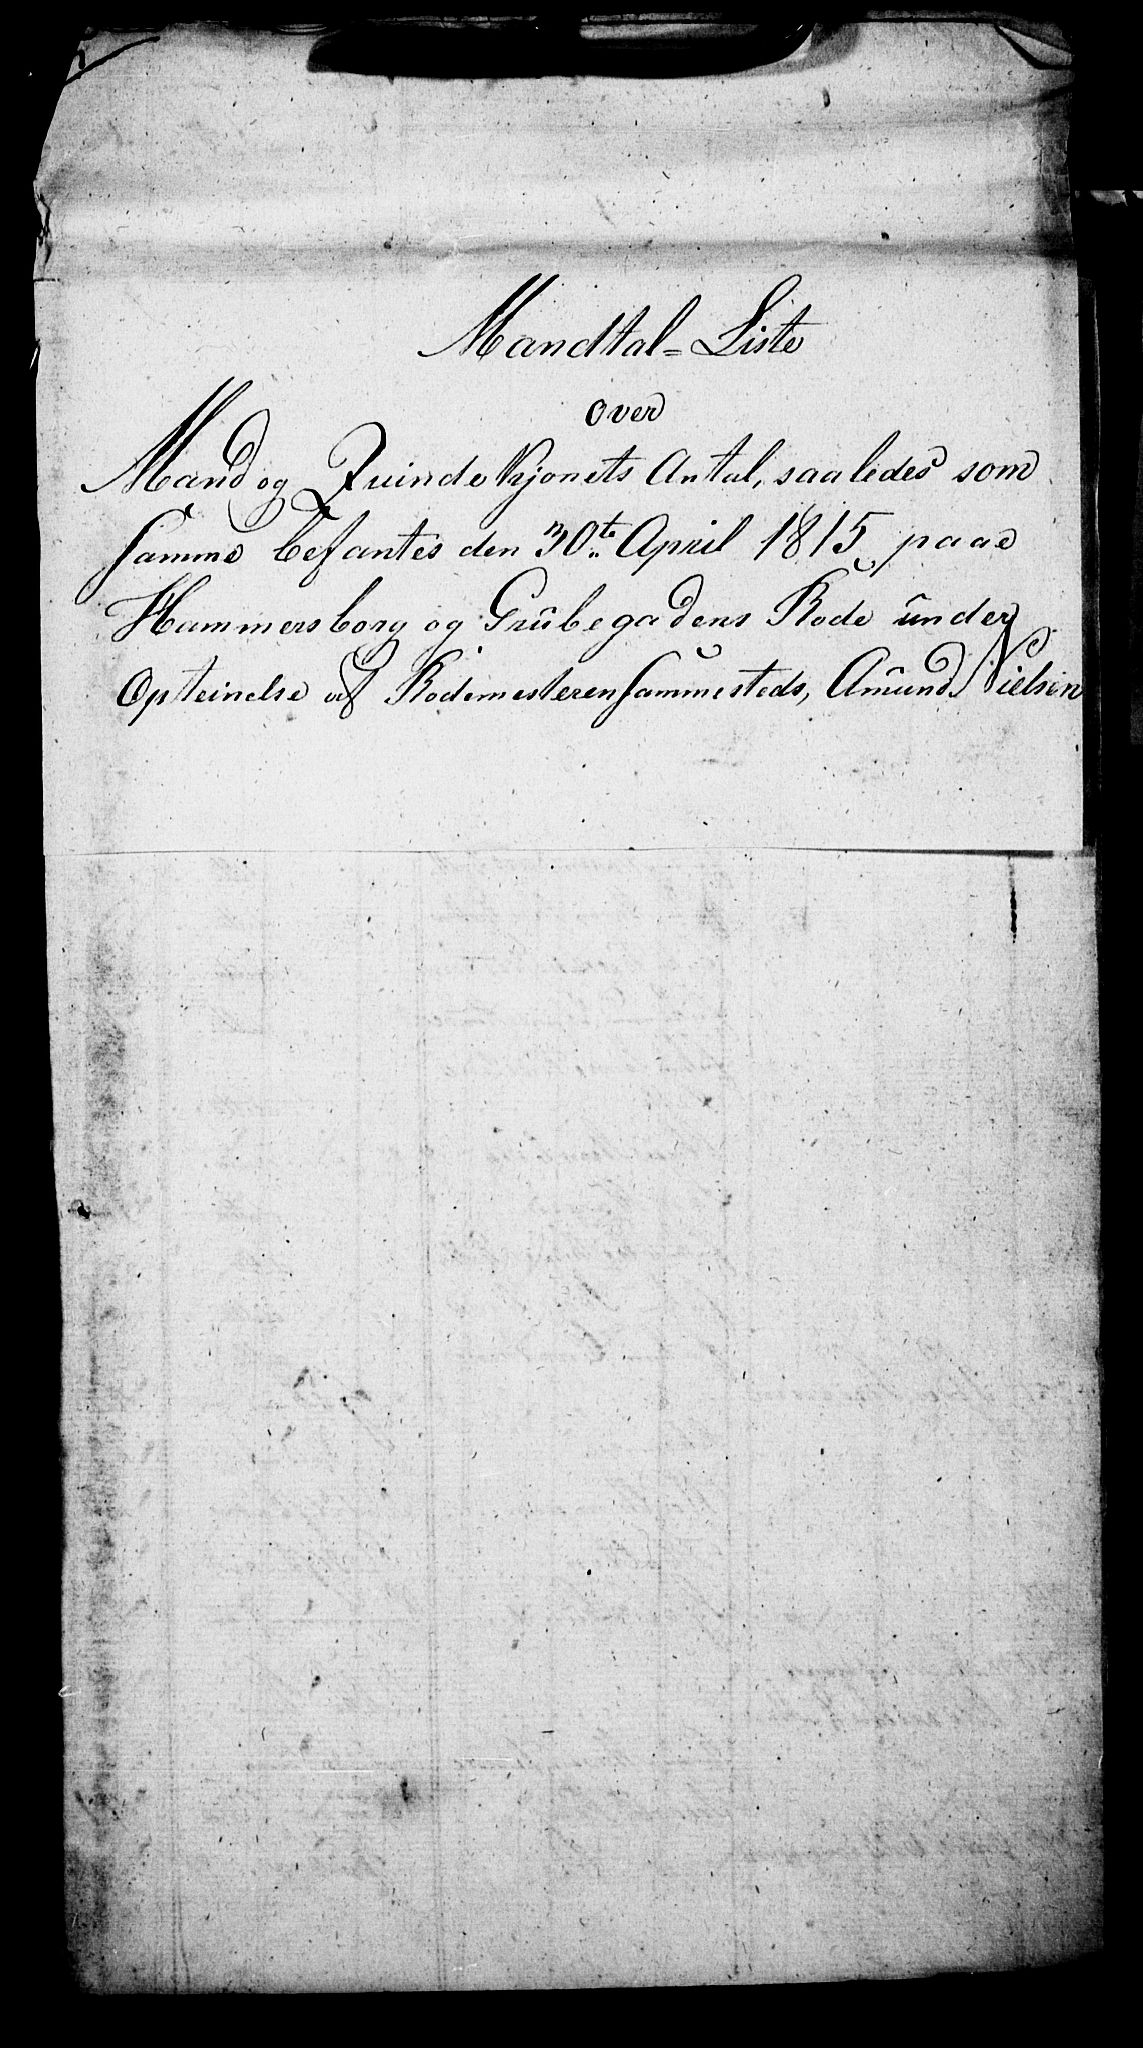 Mandtal=Liste
over
Mand og Quinde Kjønets Antal, saaledes som
samme befantes den 30te April 1815 paae
Hammersborg og Grübegadens Rode ünder
Opteinelse af Rodemesteren sammesteds, Amünd Nielsen